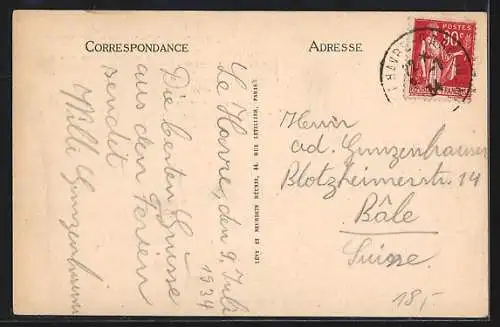 CORRESPONDANCE
ADRESSE
POSTES
90c
HAVRE
Le Havre, den 9. Juli
1934
Die besten Grüsse
aus den Ferien
sendit
Willi Gunzenhauser
LÉVY ET NEURDEIN RÉUNIS, 44, RUE LETELLIER, PARIS
Herrn
Ad. Gunzenhauser
Blotzheimerstr. 14
Bâle
Suisse
18,-